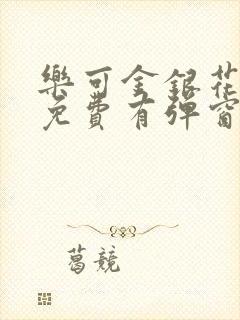 樂可金銀花
免費有彈窗
葛競